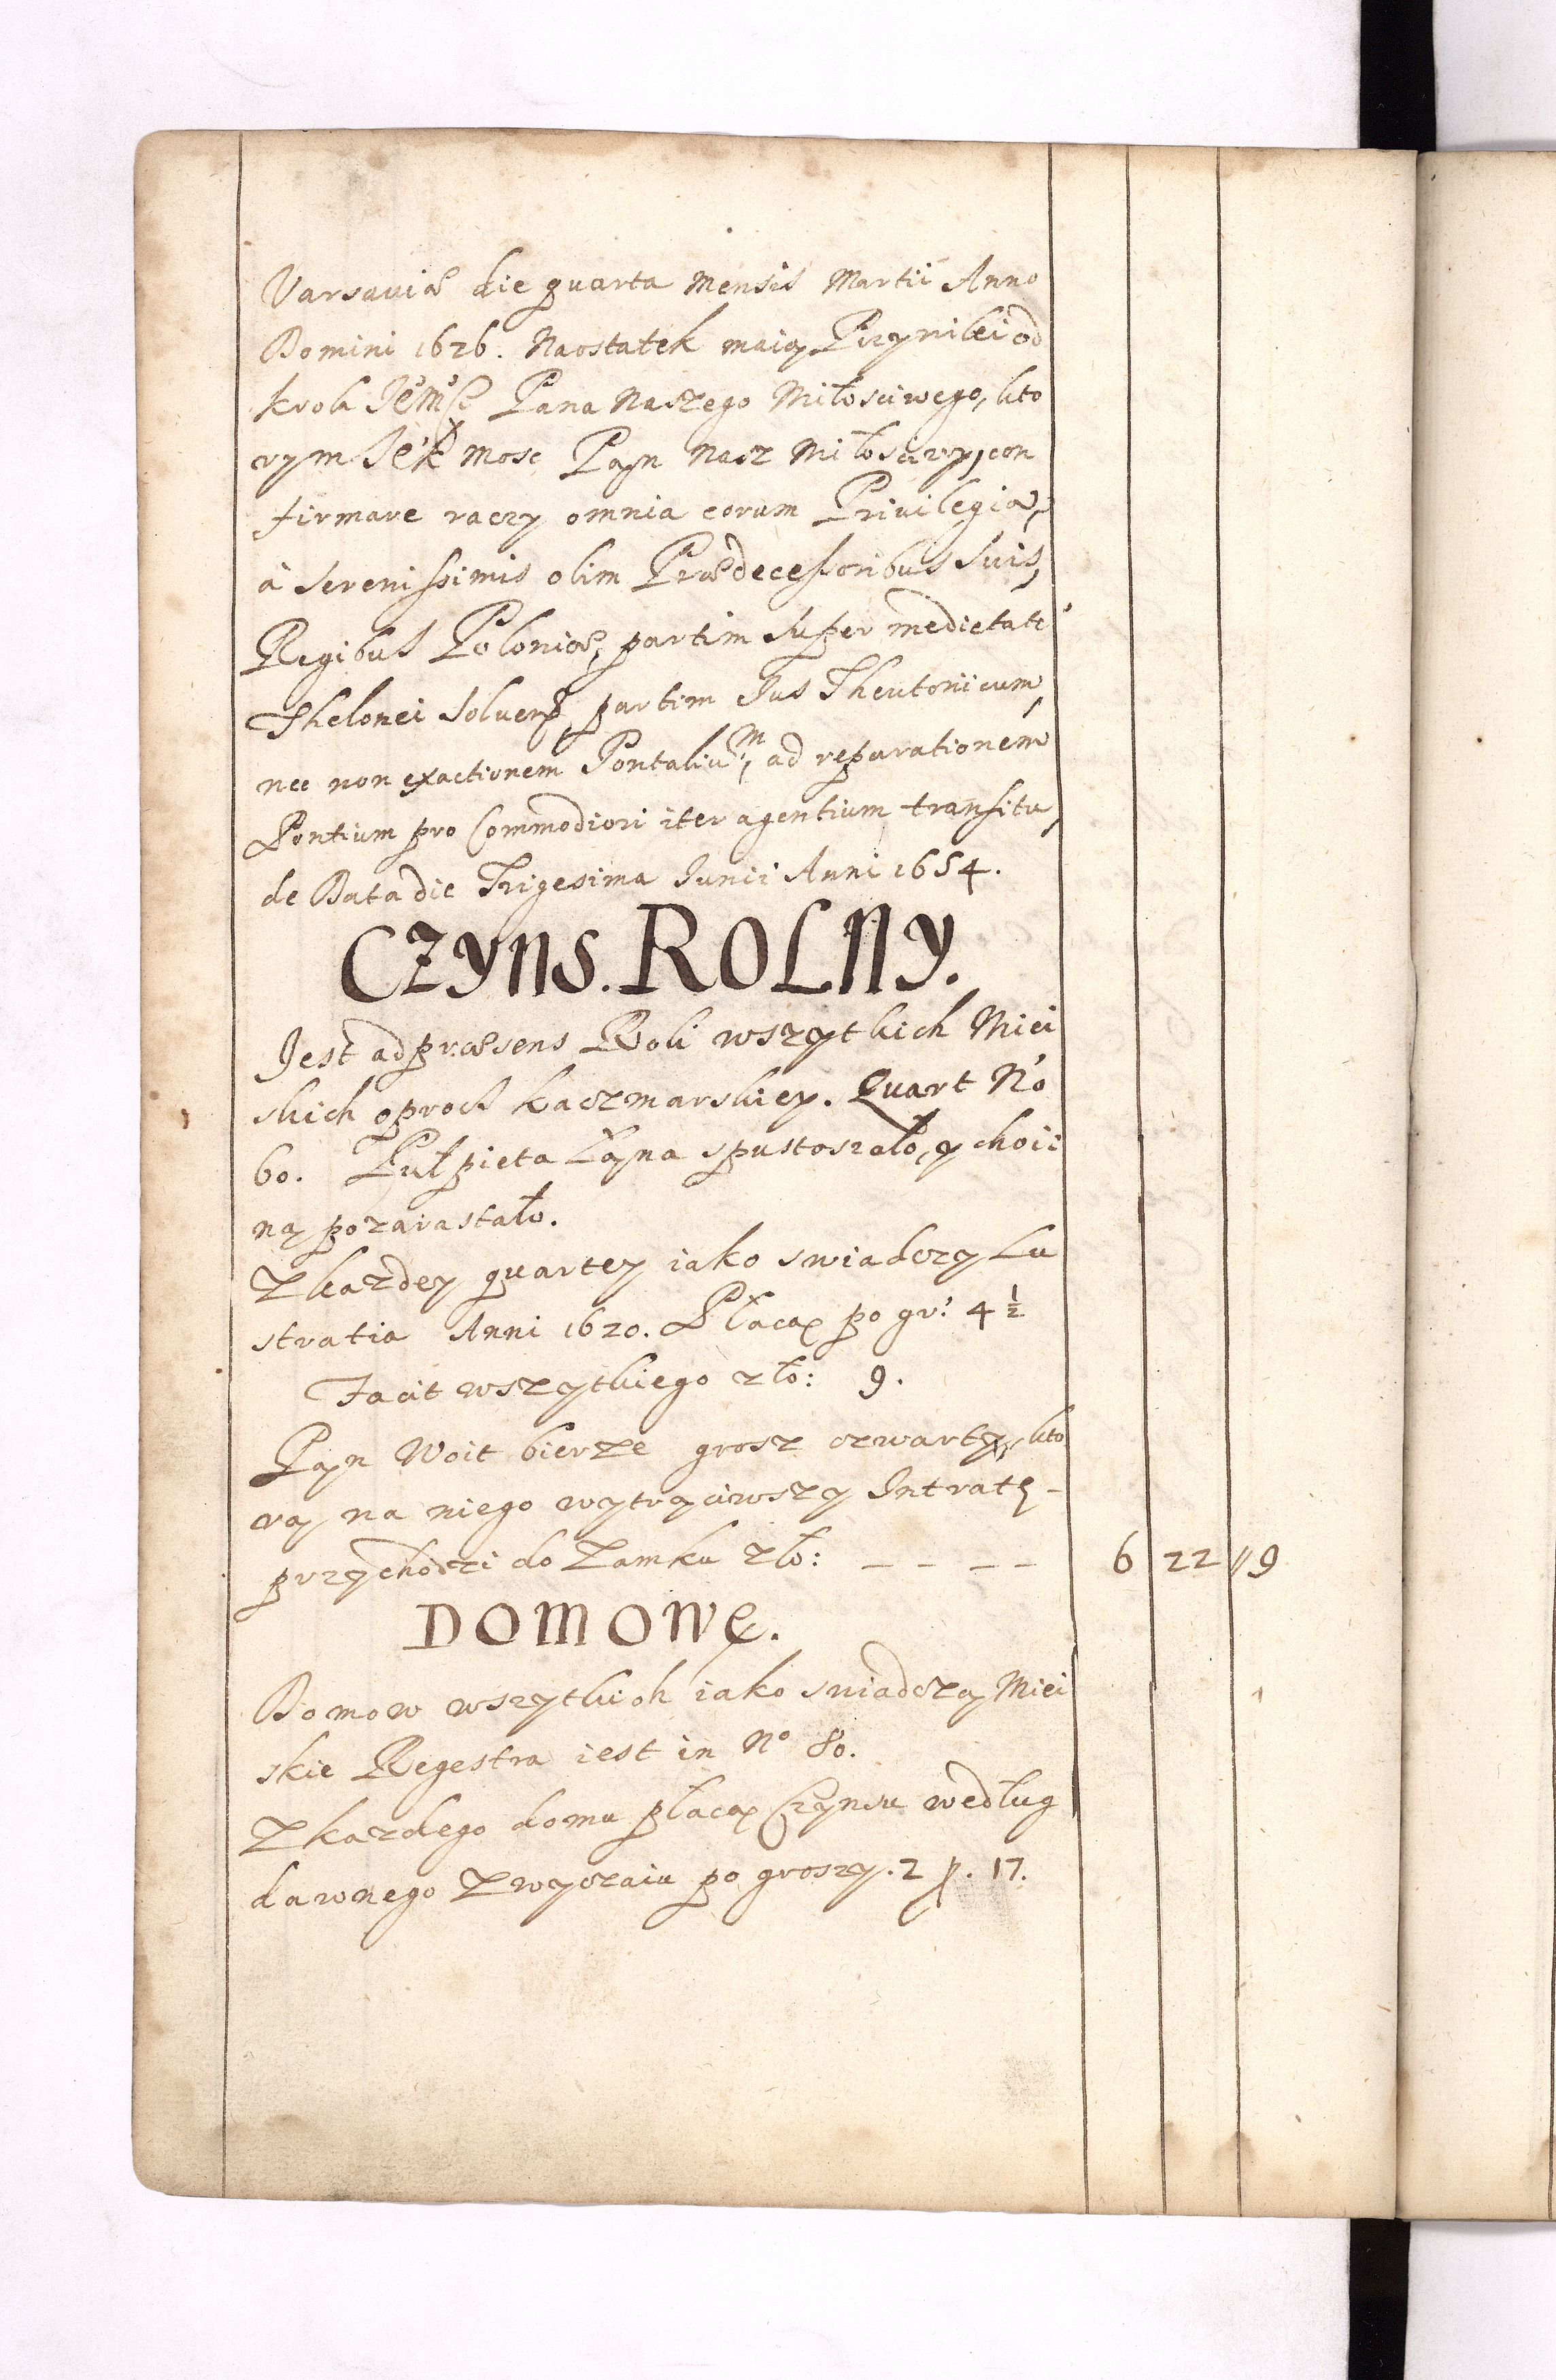 Varsaviæ die quarta Mensis Martii Anno
Domini 1626. Naostatek maią Przywilei od
krola Pana Naszego Miłosciwego, kto
rym Mosc Pąn Nasz Miłosciwy, con
firmare raczy omnia eorum Privilegia,
à Serenissimis olim Prædecessoribus Suis,
Regibus Poloniæ, partim super medietate
Thelonei partim Ius Theutonicum,
nec non exactionem Pontalium, ad reparationem
Pontium pro Commodiori iter agentium transitu,
de Data die Trigesima Iunii Anni 1654.
CZYNS. ROLNY.
Jest ad præsens Roli wszytkich Miei
skich oprocz kaczmarskiey. Quart No
60. Pułpięta Łąna spustoszało, y choii
ną pozarastało.
Z kazdey quarty iako swiadczy Lu
stratia Anni 1620. Płacą po gr: 4 1/2
Facit wszytkiego zło: 9.
Pąn Woit bierze grosz czwarty, kto
rą na niego wytrąciwszy Intratę -
przychodzi do Zamku zło: - - - - 6 22 // 9
DOMOWY.
Domow wszytkich iako swiadczą Miei
skie Regestra iest in No 80.
Z kazdego domu płacą Czynsu według
dawnego Zwyczaiu po groszy. 2 //. 17.